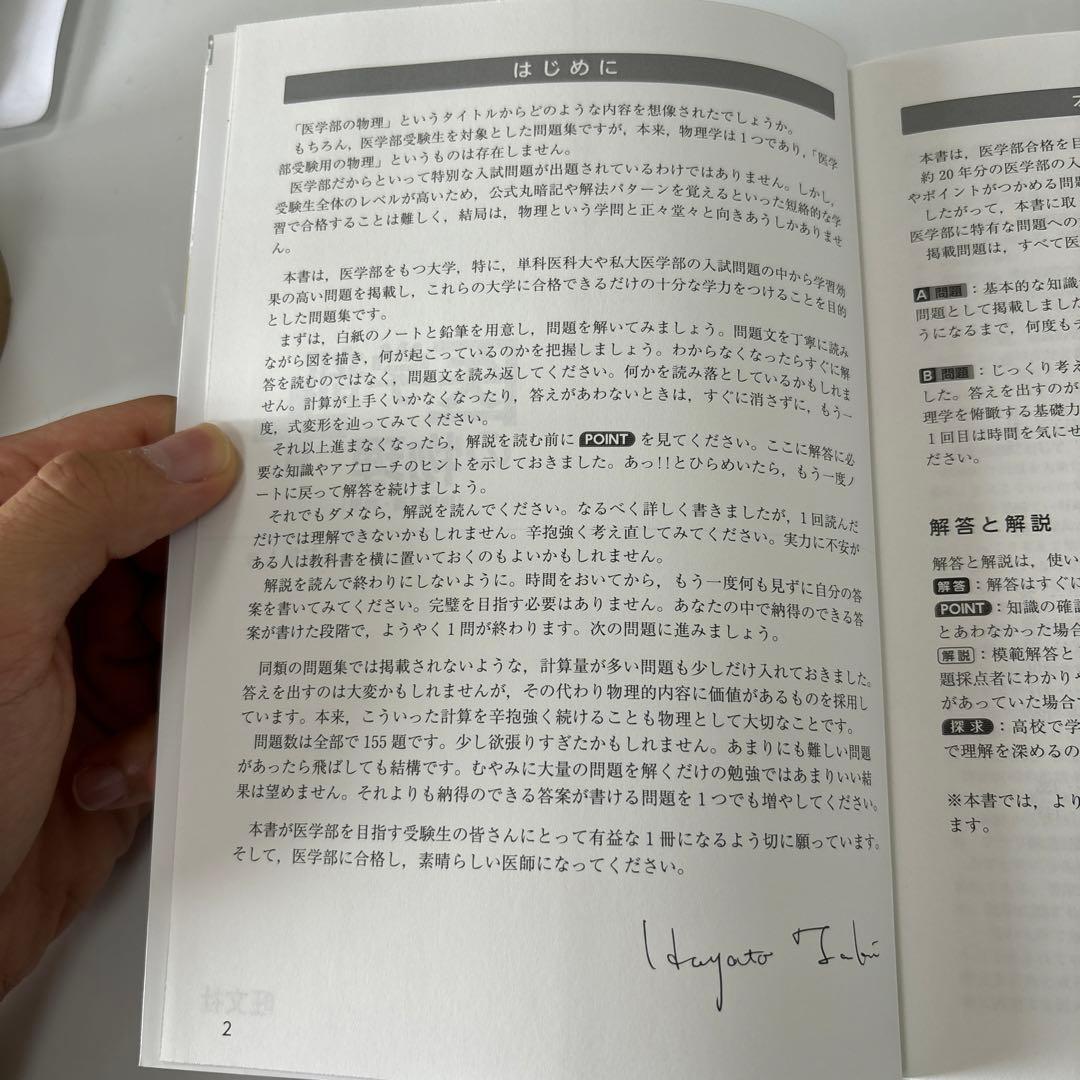 はじめに
「医学部の物理」というタイトルからどのような内容を想像されたでしょうか。
もちろん，医学部受験生を対象とした問題集ですが，本来，物理学は1つであり，「医学
部受験用の物理」というものは存在しません。
医学部だからといって特別な入試問題が出題されているわけではありません。しかし，
受験生全体のレベルが高いため，公式丸暗記や解法パターンを覚えるといった短絡的な学
習で合格することは難しく，結局は，物理という学問と正々堂々と向きあうしかありませ
ん。
本書は，医学部をもつ大学，特に，単科医科大や私大医学部の入試問題の中から学習効
果の高い問題を掲載し，これらの大学に合格できるだけの十分な学力をつけることを目的
とした問題集です。
まずは，白紙のノートと鉛筆を用意し，問題を解いてみましょう。問題文を丁寧に読み
ながら図を描き，何が起こっているのかを把握しましょう。わからなくなったらすぐに解
答を読むのではなく，問題文を読み返してください。何かを読み落としているかもしれま
せん。計算が上手くいかなくなったり，答えがあわないときは，すぐに消さずに，もう一
度，式変形を辿ってみてください。
それ以上進まなくなったら，解説を読む前に POINT を見てください。ここに解答に必
要な知識やアプローチのヒントを示しておきました。あっ!!とひらめいたら，もう一度ノ
ートに戻って解答を続けましょう。
それでもダメなら，解説を読んでください。なるべく詳しく書きましたが，1回読んだ
だけでは理解できないかもしれません。辛抱強く考え直してみてください。実力に不安が
ある人は教科書を横に置いておくのもよいかもしれません。
解説を読んで終わりにしないように。時間をおいてから，もう一度何も見ずに自分の答
案を書いてみてください。完璧を目指す必要はありません。あなたの中で納得のできる答
案が書けた段階で，ようやく1問が終わります。次の問題に進みましょう。
同類の問題集では掲載されないような，計算量が多い問題も少しだけ入れておきました。
答えを出すのは大変かもしれませんが，その代わり物理的内容に価値があるものを採用し
ています。本来，こういった計算を辛抱強く続けることも物理として大切なことです。
問題数は全部で155題です。少し欲張りすぎたかもしれません。あまりにも難しい問題
があったら飛ばしても結構です。むやみに大量の問題を解くだけの勉強ではあまりいい結
果は望めません。それよりも納得のできる答案が書ける問題を1つでも増やしてください。
本書が医学部を目指す受験生の皆さんにとって有益な1冊になるよう切に願っています。
そして，医学部に合格し，素晴らしい医師になってください。
Hayato
2
本書は，医学部合格を目
約20年分の医学部の入
やポイントがつかめる問題
したがって，本書に取
医学部に特有な問題への
掲載問題は，すべて医
A 問題：基本的な知識
問題として掲載しました
うになるまで，何度もテ
B 問題：じっくり考え
した。答えを出すのが
理学を俯瞰する基礎力
1回目は時間を気にせ
ださい。
解答と解説
解答と解説は，使い
解答：解答はすぐに
POINT：知識の確認
とあわなかった場合
解説：模範解答と
題採点者にわかりや
があっていた場合で
探求：高校で学
で理解を深めるの
※本書では，より
ます。